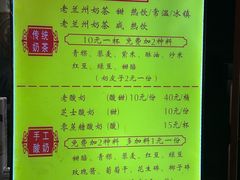 老兰州奶茶 甜 热饮/常温/冰镇
老兰州奶茶 咸 热饮
传统奶茶
10元一杯 免费加2种料
青稞、藜麦、紫米、酥油、沙米
红豆、绿豆、甜醅
(奶皮子2元一份)
手工酸奶
老酸奶 (酸甜) 10元/份 40元/桶
芝士酸奶 (甜) 10元/份
零蔗糖酸奶 (酸) 15元/杯
免费加2种料 多加料1元一份
甜醅、青稞、藜麦、红豆、绿豆
玫瑰酱、葡萄干、花生碎、椰子碎